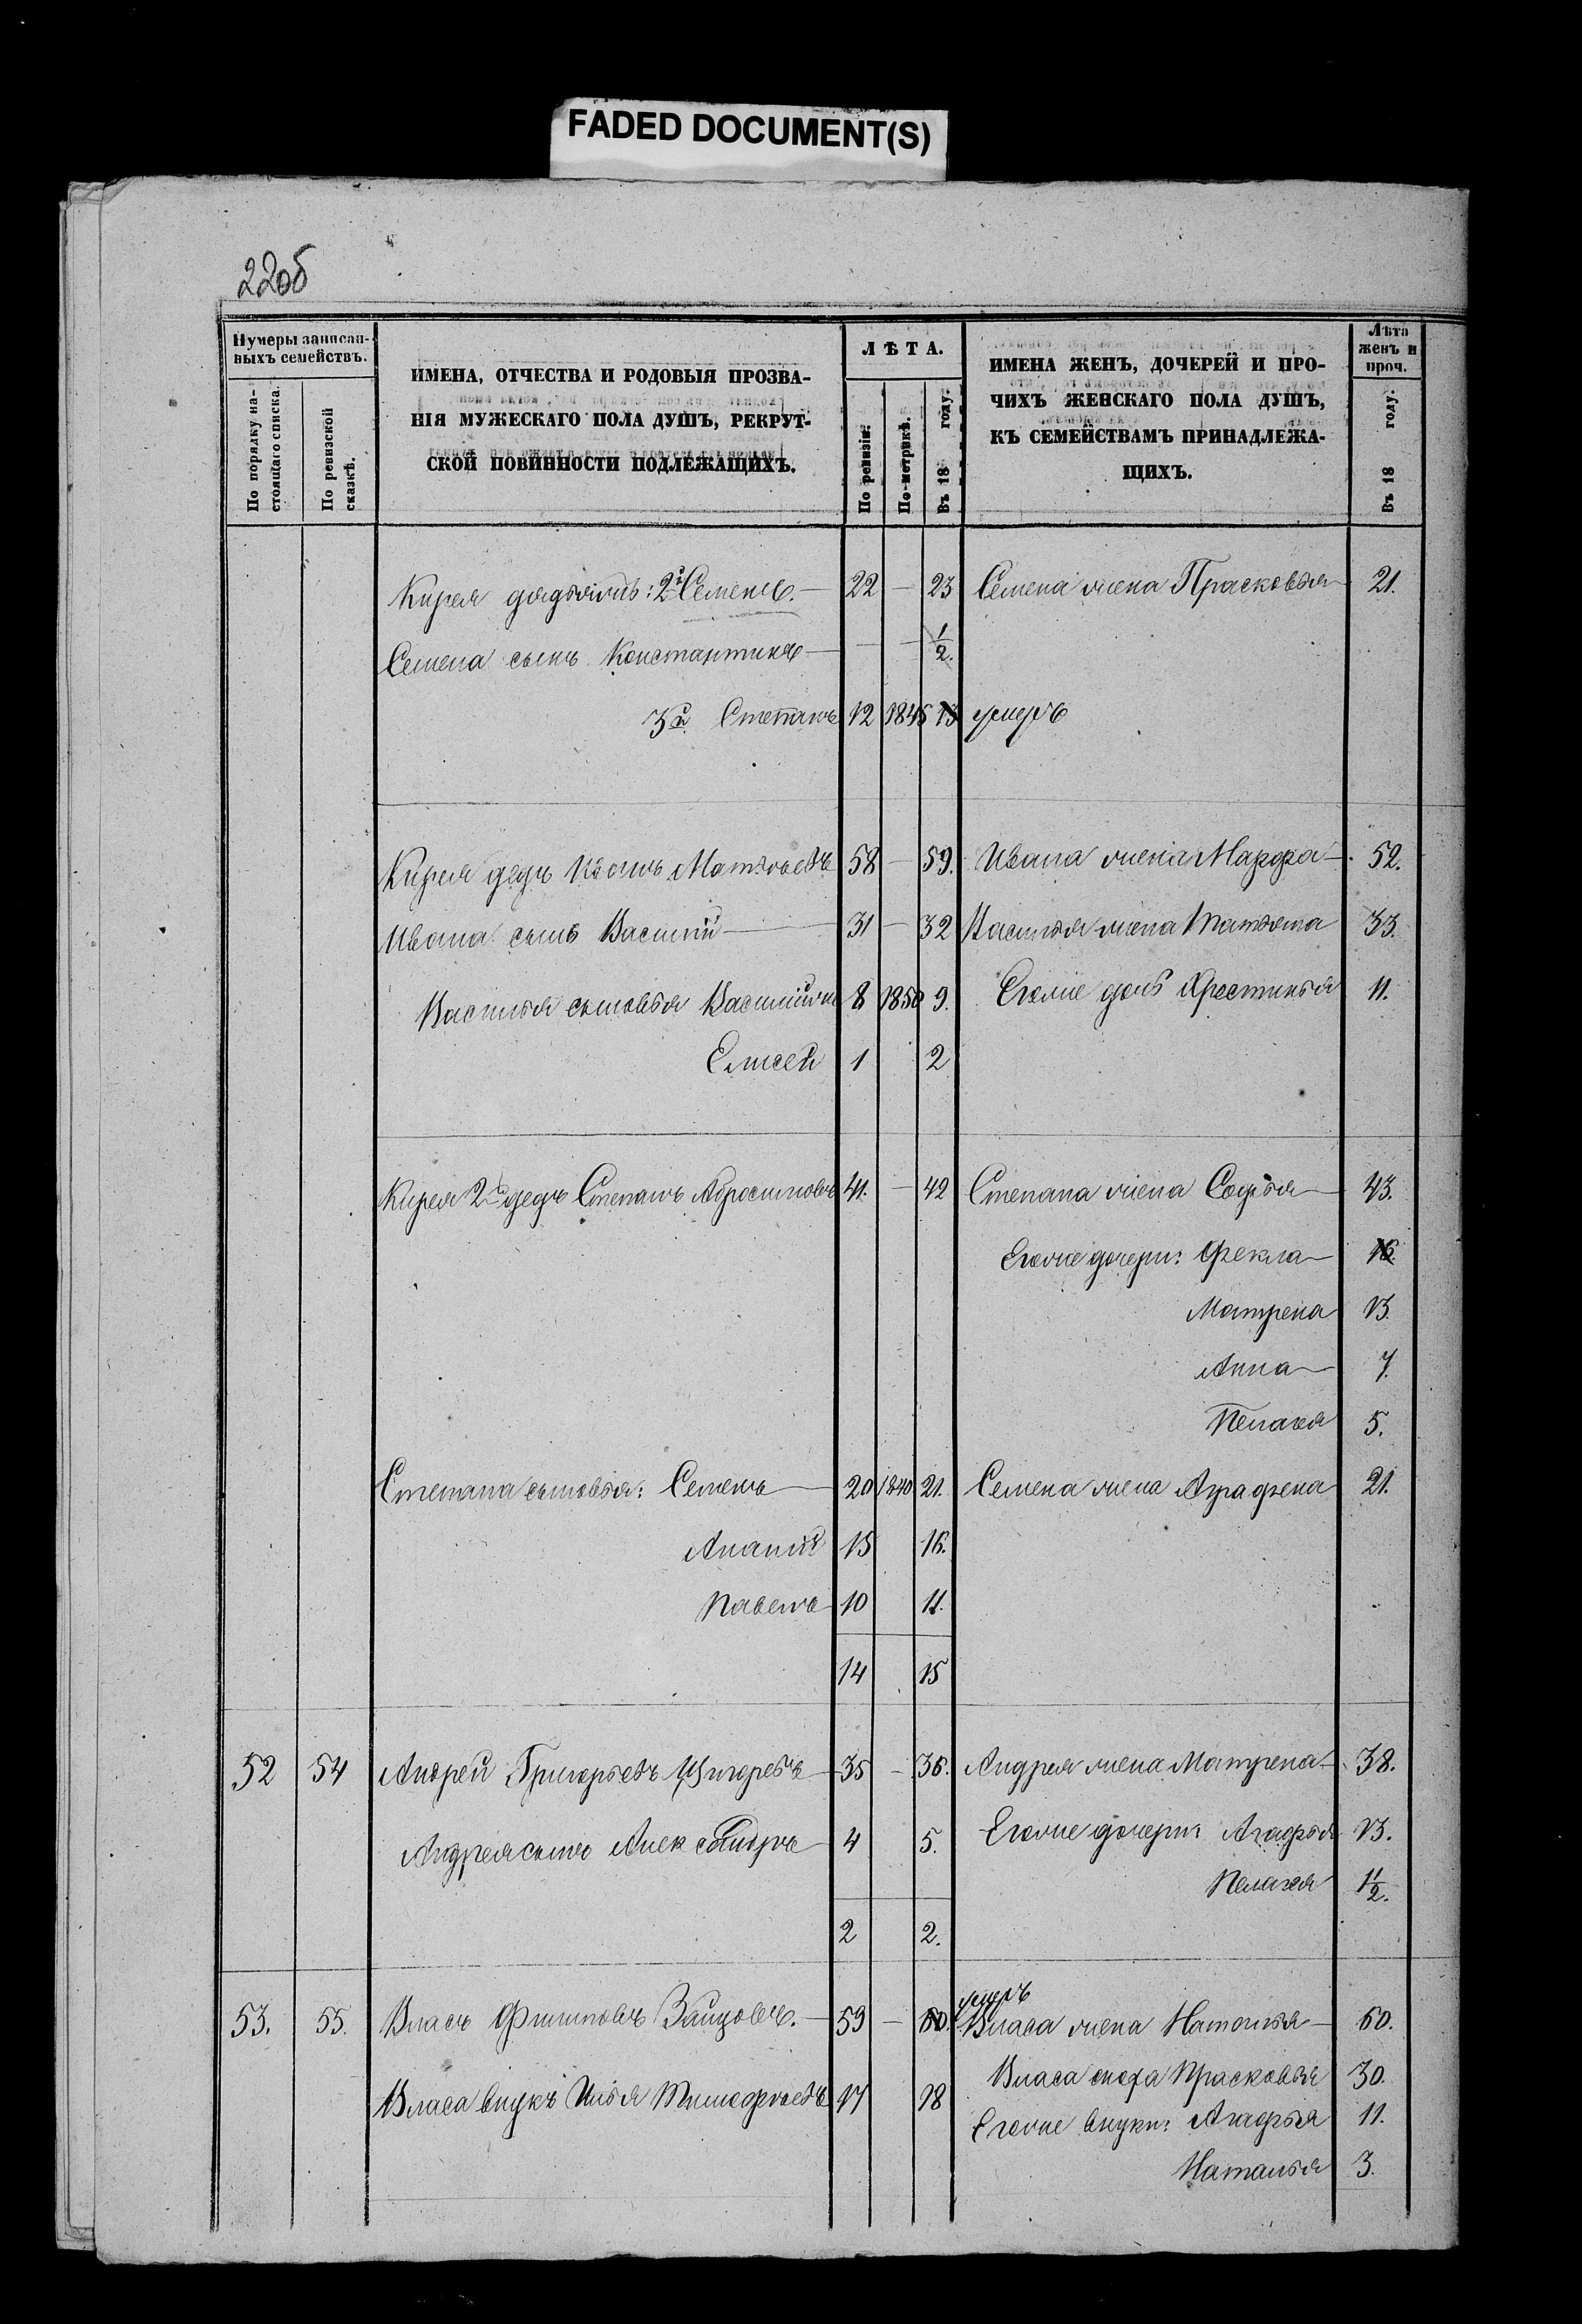 FADED DOCUMENT(S)
22об
Нумеры записан-
ныхъ семействъ.
По порядку на-
стоящаго списка.
По ревизской
сказкѣ.
ИМЕНА, ОТЧЕСТВА И РОДОВЫЯ ПРОЗВА-
НІЯ МУЖЕСКАГО ПОЛА ДУШЪ, РЕКРУТ-
СКОЙ ПОВИННОСТИ ПОДЛЕЖАЩИХЪ.
ЛѢТА.
По ревизіи.
По метрикѣ.
Въ 18 году.
ИМЕНА ЖЕНЪ, ДОЧЕРЕЙ И ПРО-
ЧИХЪ ЖЕНСКАГО ПОЛА ДУШЪ,
КЪ СЕМЕЙСТВАМЪ ПРИНАДЛЕЖА-
ЩИХЪ.
Лѣта
женъ и
проч.
Въ 18 году.
Кирея 2й Семенъ. — 22 — 23 Семена жена Прасковья 21.
Семена сынъ Константинъ — — — 1/2.
3й Степанъ 12 1845 13 умеръ
Кирея дедъ Иванъ Матвѣевъ 58 — 59. Ивана жена Марфа — 52.
Ивана сынъ Василій — 31 — 32 Василья жена Татьяна 33.
Василья сыновья Василій 8 1850 9. Егоже дочь Христинья 11.
Елисей 1 2
Кирея 2й дедъ Степанъ Абросимовъ 41. — 42 Степана жена Софья 43.
Егоже дочери: Фекла 16.
Матрена 13.
Анна 7.
Пелагея 5.
Степана сыновья: Семенъ 20 1840 21. Семена жена Аграфена 21.
Ананій 15 16.
Павелъ 10 11.
14 15
52 54 Андрей Григорьевъ 35 — 36. Андрея жена Матрена 38.
Андрея сынъ Александръ 4 5. Егоже дочери: Агафья 13.
Пелагея 1 1/2.
2 2.
умеръ
53. 55. Власъ Филиповъ Зайцовъ. — 59 — 60. Власа жена Наталья — 60.
Власа сноха Прасковья 30.
Власа внукъ Илья Тимофѣевъ 17 18
Егоже внуки: Агафья 11.
Наталья 3.